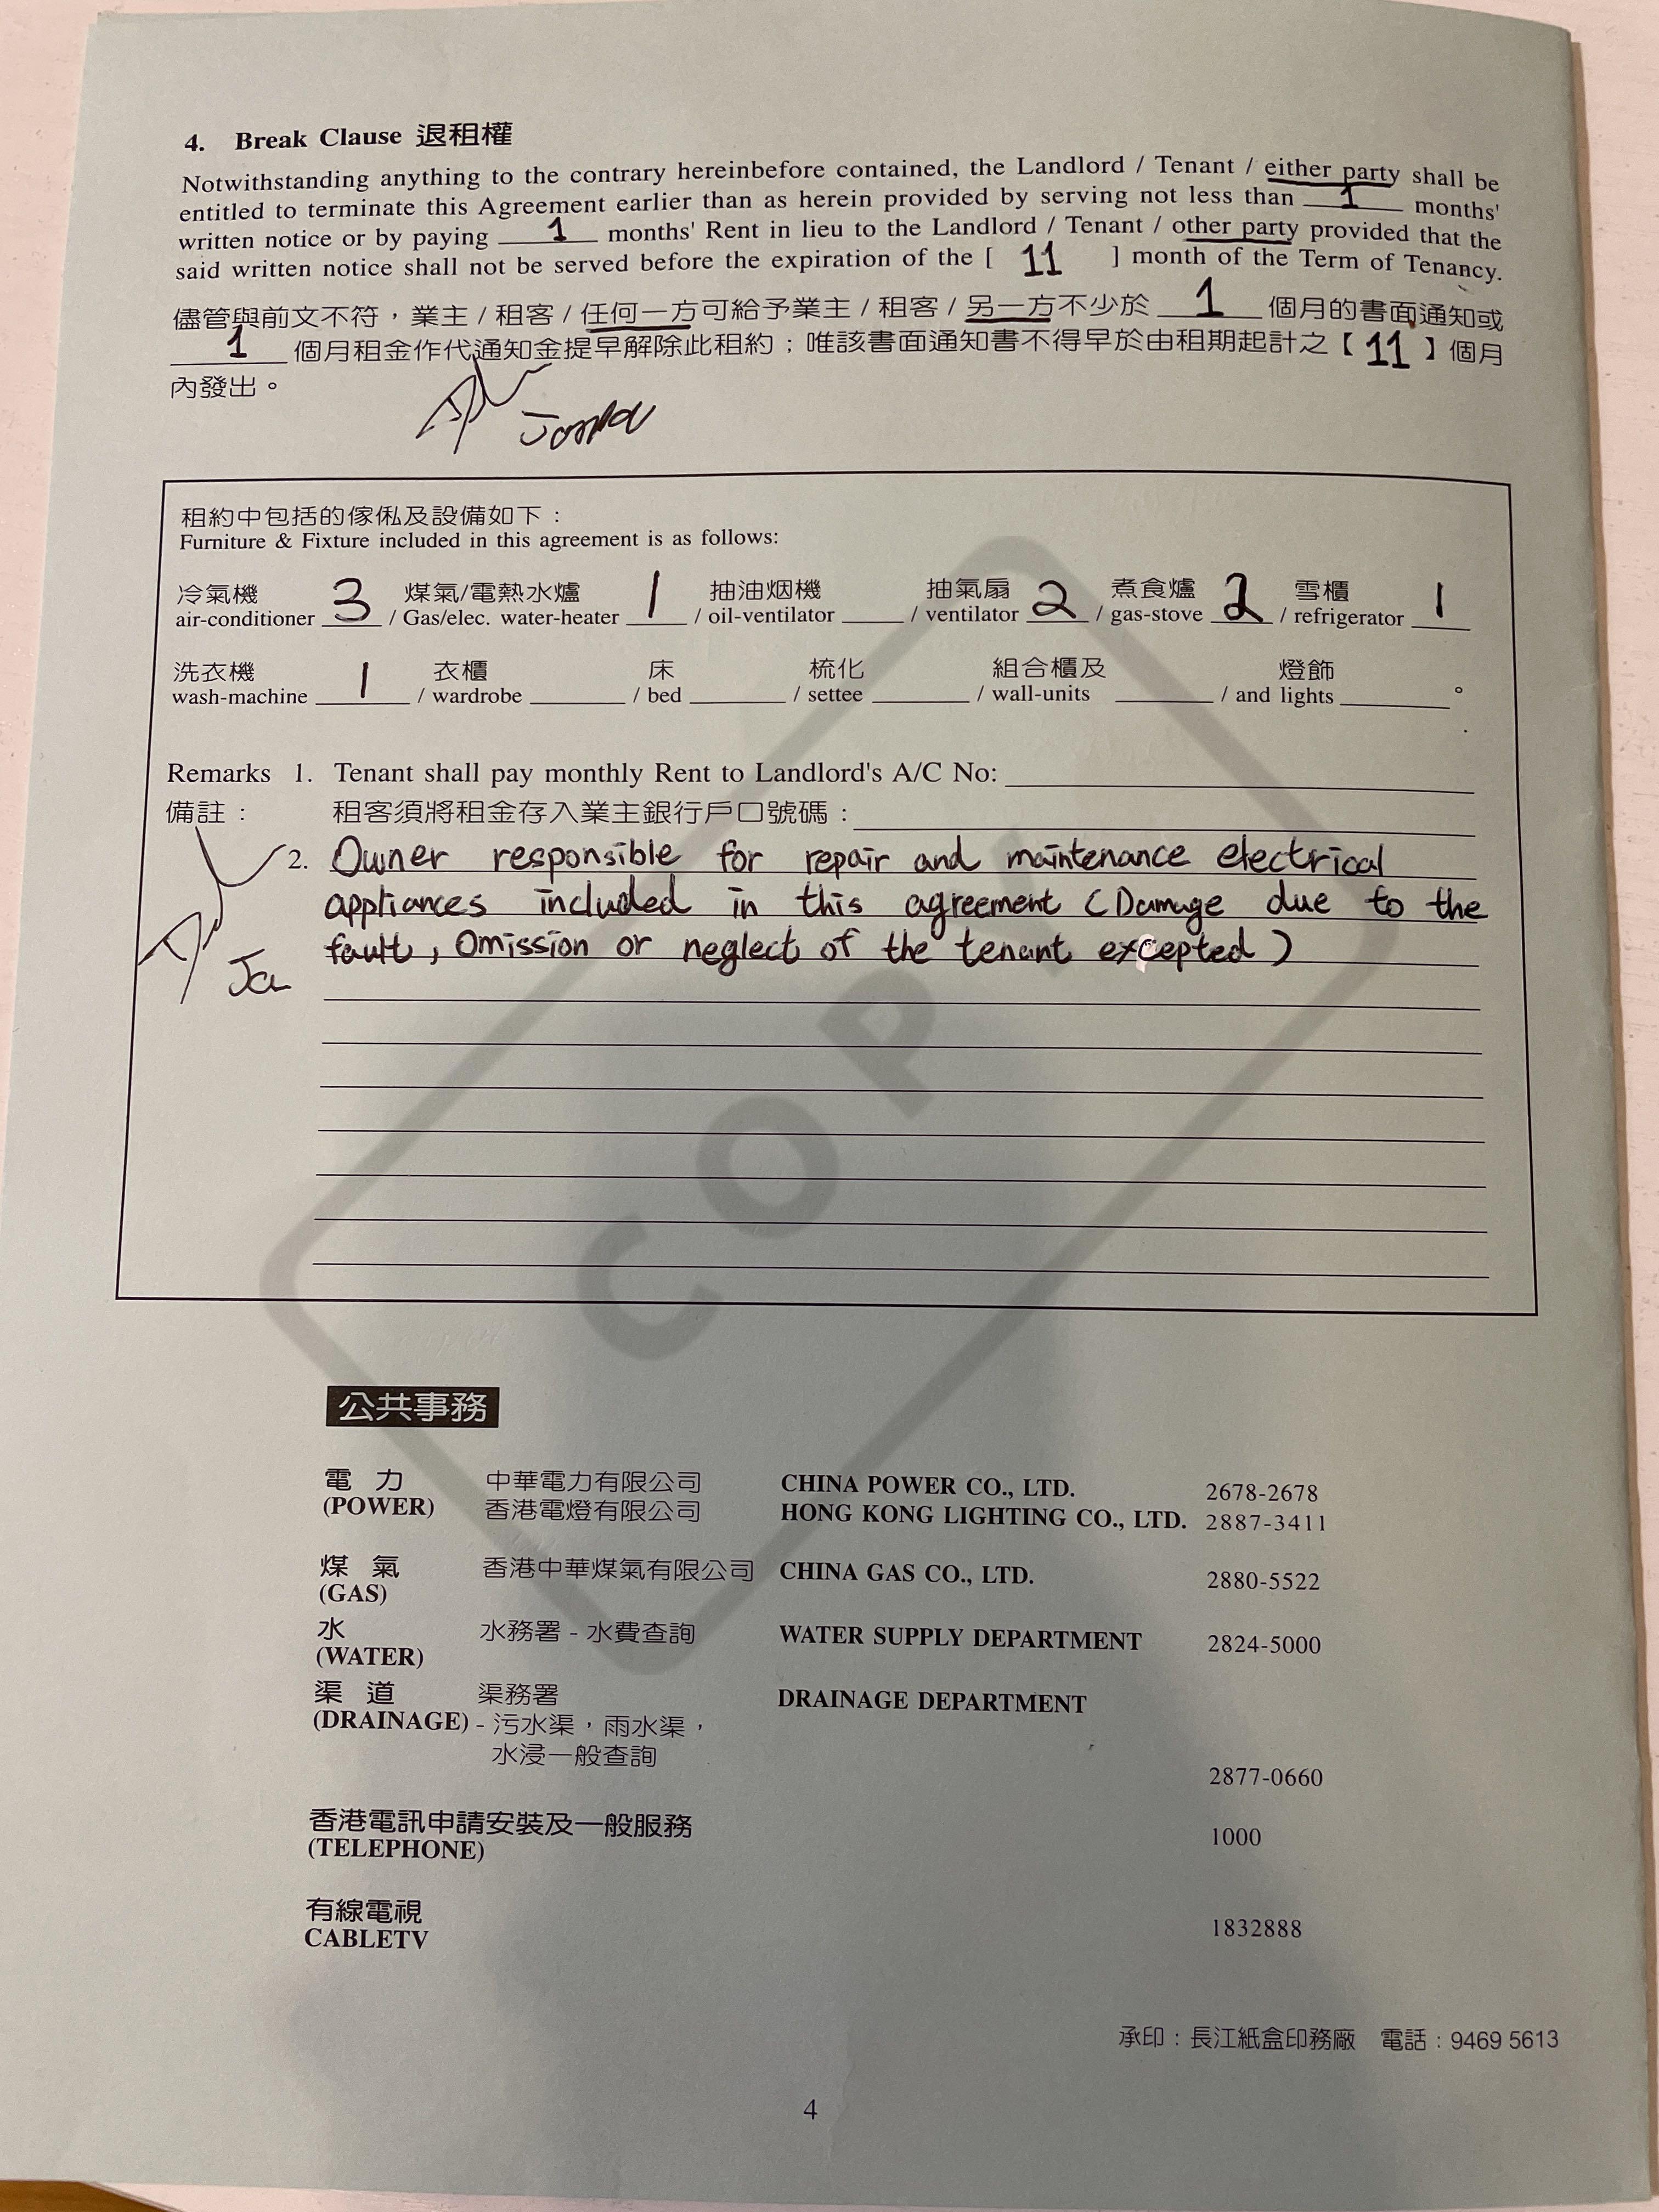 4. Break Clause 退租權
Notwithstanding anything to the contrary hereinbefore contained, the Landlord / Tenant / either party shall be
entitled to terminate this Agreement earlier than as herein provided by serving not less than 1 months'
written notice or by paying 1 months' Rent in lieu to the Landlord / Tenant / other party provided that the
said written notice shall not be served before the expiration of the [ 11 ] month of the Term of Tenancy.
儘管與前文不符，業主 / 租客 / 任何一方可給予業主 / 租客 / 另一方不少於 1 個月的書面通知或
1 個月租金作代通知金提早解除此租約；唯該書面通知書不得早於由租期起計之【 11 】個月
內發出。
租約中包括的傢俬及設備如下：
Furniture & Fixture included in this agreement is as follows:
冷氣機 煤氣/電熱水爐 抽油烟機 抽氣扇 煮食爐 雪櫃
air-conditioner 3 / Gas/elec. water-heater 1 / oil-ventilator / ventilator 2 / gas-stove 2 / refrigerator 1
洗衣機 衣櫃 床 梳化 組合櫃及 燈飾
wash-machine 1 / wardrobe / bed / settee / wall-units / and lights 。
Remarks 1. Tenant shall pay monthly Rent to Landlord's A/C No:
備註： 租客須將租金存入業主銀行戶口號碼：
2. Owner responsible for repair and maintenance electrical
appliances included in this agreement (Damage due to the
fault, Omission or neglect of the tenant excepted)
COPY
公共事務
電 力 中華電力有限公司 CHINA POWER CO., LTD. 2678-2678
(POWER) 香港電燈有限公司 HONG KONG LIGHTING CO., LTD. 2887-3411
煤 氣 香港中華煤氣有限公司 CHINA GAS CO., LTD. 2880-5522
(GAS)
水 水務署 - 水費查詢 WATER SUPPLY DEPARTMENT 2824-5000
(WATER)
渠 道 渠務署 DRAINAGE DEPARTMENT
(DRAINAGE) - 污水渠，雨水渠，
水浸一般查詢 2877-0660
香港電訊申請安裝及一般服務 1000
(TELEPHONE)
有線電視 1832888
CABLETV
承印：長江紙盒印務廠 電話：9469 5613
4